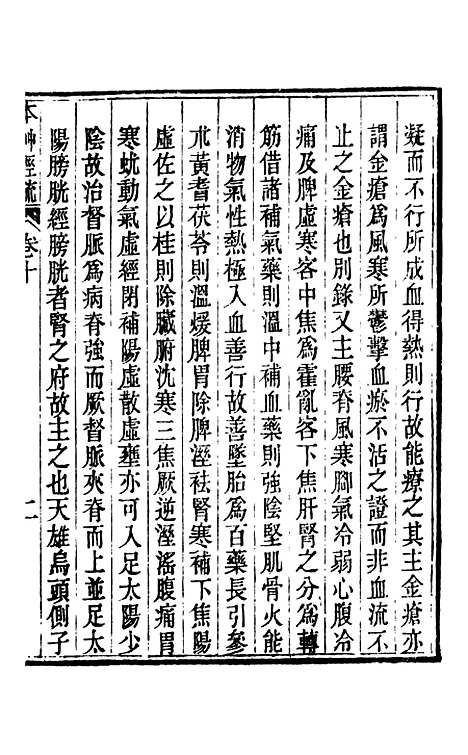 凝而不行所成血得熱則行故能療之其主金瘡亦
謂金瘡爲風寒所鬱擊血瘀不活之證而非血流不
止之金瘡也别錄又主腰脊風寒腳氣冷弱心腹冷
痛及脾虛寒客中焦爲霍亂客下焦肝腎之分爲轉
筋借諸補氣藥則溫中補血藥則強陰堅肌骨火能
消物氣性熱極入血善行故善墜胎爲百藥長引參
朮黃耆茯苓則溫煖脾胃除脾溼祛腎寒補下焦陽
虛佐之以桂則除臟腑沈寒三焦厥逆溼滛腹痛胃
寒蚘動氣虛經閉補陽虛散虛壅亦可入足太陽少
陰故治督脈爲病脊強而厥督脈夾脊而上並足太
陽膀胱經膀胱者腎之府故主之也天雄烏頭側子
本艸經疏 卷十 二